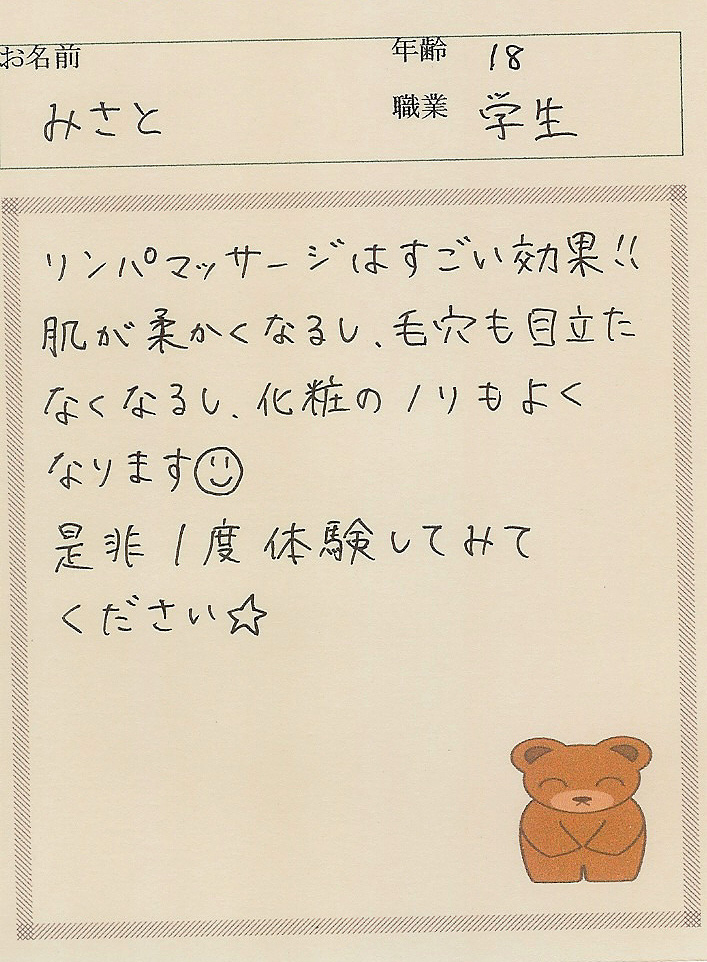 お名前
年齢 18
みさと
職業 学生
リンパマッサージはすごい効果!!
肌が柔かくなるし、毛穴も目立た
なくなるし、化粧のノリもよく
なります☺
是非1度体験してみて
ください☆